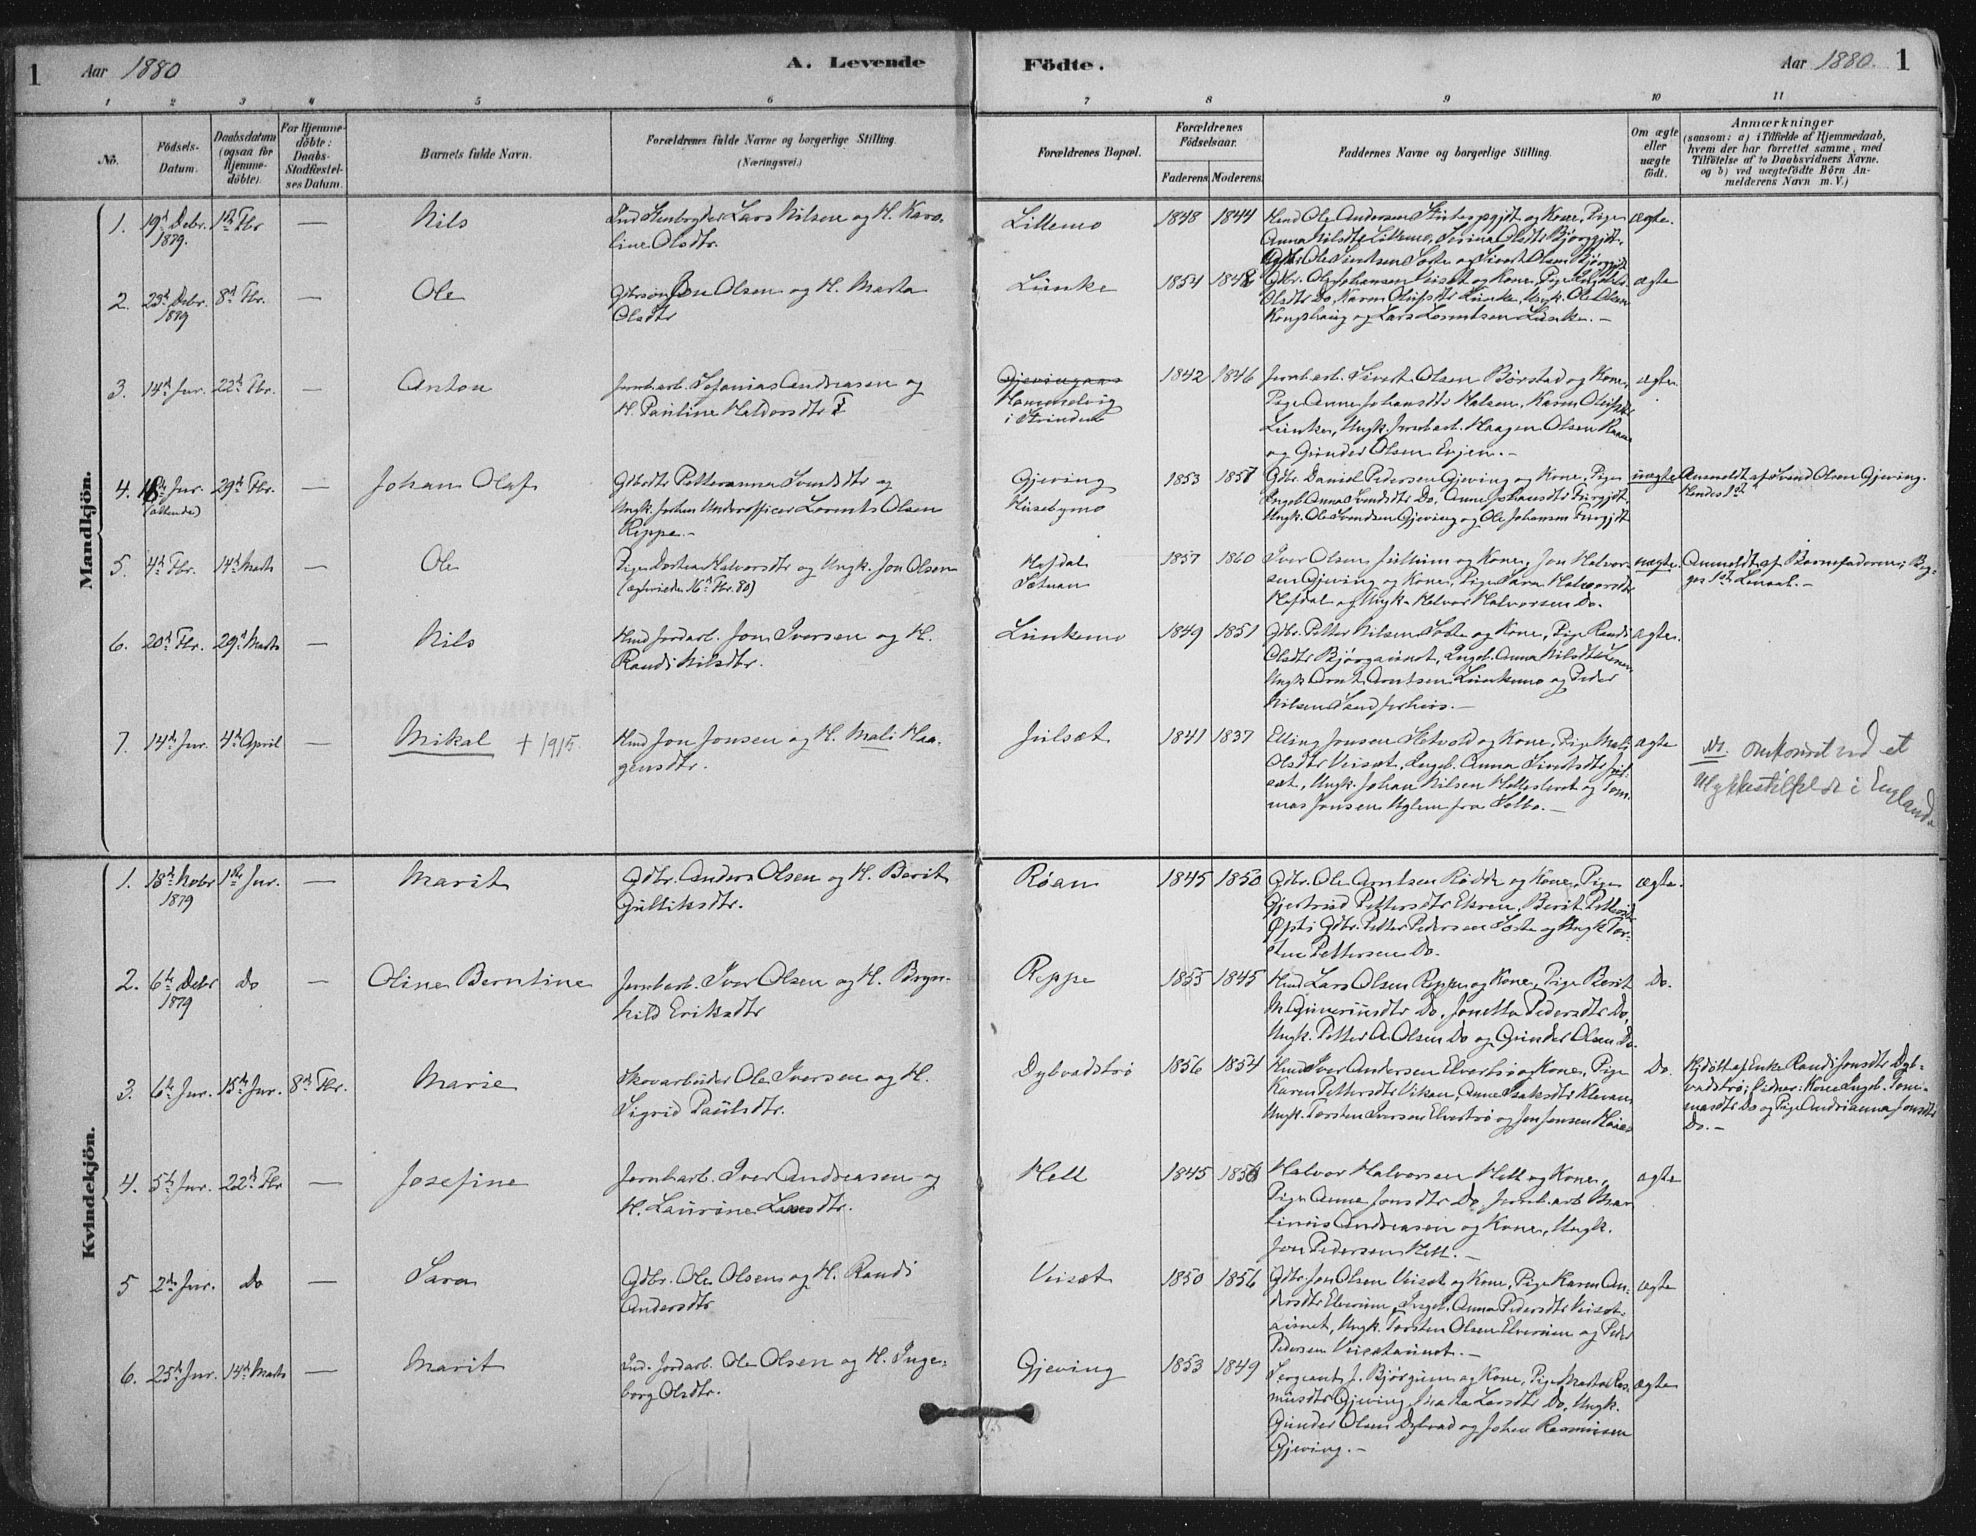 1 Aar 1880 A. Levende Födte. Aar 1880. 1
1 2 3 4 5 6 7 8 9 10 11
No.
Födsels-
Datum.
Daabsdatum
(ogsaa for
Hjemme-
döbte).
For Hjemme-
döbte:
Daabs-
Stadfæstel-
ses Datum.
Barnets fulde Navn.
Forældrenes fulde Navne og borgerlige Stilling.
(Næringsvei.)
Forældrenes Bopæl.
Forældrenes
Födselsaar.
Faderens. Moderens.
Faddernes Navne og borgerlige Stilling.
Om ægte
eller
uægte
födt.
Anmærkninger
(saasom: a) i Tilfælde af Hjemmedaab,
hvem der har forrettet samme, med
Tilföielse af to Daabsvidners Navne,
og b) ved uægtefödte Börn An-
melderens Navn m. V.)
Mandkjön.
1. 19d Debr. 1879. 1ste Fbr — Nils
Lars Nilsen og H. Karo-
line Olsdtr.
Lillemo 1848 1844
Ole Andersen og Kone, Pige
Anna Nilsdtr Lillemo, Serina Olsdtr
ægte.
2. 23d Debr. 1879 8d Fbr. — Ole
Gbrsøn Jon Olsen og H. Marta
Olsdtr
Lünke 1854 1848
Gbr. Ole Johansen Viset og Kone, Pige
Olsdtr Do, Karen Olufsdtr Lünke, Ungk. Ole Olsen
Kongshaug og Lars Lorentsen Lünke. —
ægte
3. 14d Jnr. 22d Fbr. — Anton
Jernbarb. Sefanias Andreasen og
H. Pauline Haldorsdtr F
Gjevingaas
Hommelvig
i Strinden
1842 1846
Jernbarb. Sivert Olsen Børstad og Kone,
Pige Anne Johansdtr Halsen, Karen Olufsdtr
Lünke, Ungk. Jernbarb. Haagen Olsen
og Günder Olsen Evjen. —
ægte
4. Jnr. 29d Fbr. — Johan Olaf
Gbrdtr Petteranna Svendsdtr og
Ungk. Johan Underofficer Lorents Olsen
Reppe. —
Gjeving
Husebymo
1853 1857
Gbr. Daniel Pedersen Gjeving og Kone, Pige
Ingeb. Anna Svendsdtr Do, Anne Johansdtr
Ungk. Ole Svendsen Gjeving og Ole Johansen
uægte
Anmeldt af Svend Olsen Gjeving.
Hendes 1ste
5. 4d Fbr. 14d Marts — Ole
Pige Dortea Halvorsdtr og Ungk. Jon Olsen
Hofdal
Sætnan
1857 1860
Iver Olsen Jullium og Kone, Jon Halvor-
sen Gjeving og Kone, Pige Sara Halvorsdtr
Hofdal og Ungk. Halvor Halvorsen Do.
uægte.
Anmeldt af Barnefaderen; Beg-
ges 1ste Leiermaal. —
6. 20d Fbr. 29d Marts — Nils
Hmd Jordarb. Jon Iversen og H.
Randi Nilsdtr.
Lünkemo 1849 1851
Gbr. Petter Nilsen Soste og Kone, Pige Randi
Olsdtr Bjørgaünet, Ingeb. Anna Nilsdtr
Ungk. Arnt Arntsen Lünkemo og Peder
Nilsen
ægte.
7. 14d Jnr. 4d April — Mikal † 1915.
Hmd Jon Jonsen og H. Mali Haa-
gensdtr.
Julsæt 1841 1837
Elling Jonsen Hetvold og Kone, Pige Mali
Olsdtr Viset, Ingeb. Anna Sivertsdtr Jul-
set, Ungk. Johan Nilsen og Tom-
mas Jonsen Uglem fra Selbo. —
ægte
omkommet ved et
Ulykkestilfelde i England
Kvindekjön.
1. 18d Nobr 1879 1ste Jnr. — Marit
Gbr. Anders Olsen og H. Berit
Gulliksdtr.
Røan 1845 1850
Gbr. Ole Arntsen Rødde og Kone, Pige
Gjertrud Pettersdtr Elvrin, Berit Pettersdtr
Gbr. Petter Pedersen Soste og Ungk. Tor-
sten Pettersen Do.
ægte.
2. 6te Debr 1879 Do — Oline Berntine
Jernbarb. Iver Olsen og H. Bryn-
hild Eriksdtr
Reppe 1855 1845
Hmd Lars Olsen Reppe og Kone, Pige Berit
Do, Jonetta Pedersdtr Do,
Ungk. Petter A. Olsen Do og Günder Olsen Do.
Do.
3. 6te Jnr. 15de Jnr. 8d Fbr. Marie
Skovarbeider Ole Iversen og H.
Sigrid Paülsdtr.
Dybvadstrø 1856 1854
Hmd Iver Andersen Elvertrø og Kone, Pige
Karen Pettersdtr Vikan, Anne Isaksdtr Klevan,
Ungk. Torsten Iversen Elvertrø og Jon Jensen
Do.
Hjdøbt af Enke Randi Jonsdtr Dyb-
vadstrø; Vidner: Kone Ingeb. Tom-
masdtr Do og Pige Andrianna Jonsdtr
Do. —
4. 5te Jnr. 22d Fbr — Josefine
Jernbarb. Iver Andreasen og
H. Laürine Larsdtr.
Hell 1845 1856
Halvor Halvorsen Hell og Kone,
Pige Anne Jonsdtr Do, Jernbarb. Mar-
tinüs Andreasen og Kone, Ungk.
Jon Pedersen Hell. —
ægte
5 2de Jnr. Do — Sara
Gbr. Ole Olsen og H. Randi
Andersdtr
Viset 1850 1856
Gbr. Jon Olsen Viset og Kone, Pige Karen An-
dersdtr Elverüm, Ingeb. Anna Pedersdtr Viset-
aünet, Ungk. Torsten Olsen Elverüm og Peder
Pedersen Visetaünet. —
ægte
6. 25de Jnr. 14de Marts — Marit
Ind. Jordarb. Ole Olsen og H. Inge-
borg Olsdtr.
Gjeving 1853 1849
Sergeant J. Bjørgüm og Kone, Pige Marta Ras-
müsdtr Gjeving, Marta Larsdtr Do, Ungk.
Günder Olsen Dybvad og Johan Rasmüssen
Gjeving. —
ægte